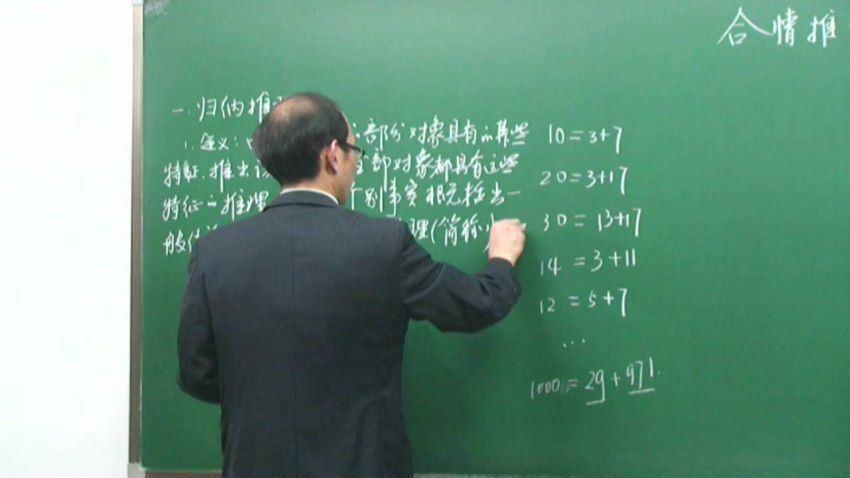 合情推
一.归纳推
1.定义:
部分对象具有的某些
特征,推出该
全部对象都具有这些
特征的推理
个别事实概括出一
般结
理(简称
10=3+7
20=3+17
30=13+17
14=3+11
12=5+7
...
1000=29+971.